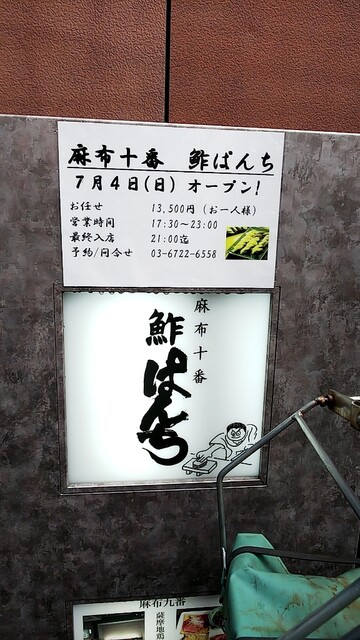 麻布十番 鮓ばんち
7月4日(日) オープン!
お任せ 13,500円 (お一人様)
営業時間 17:30〜23:00
最終入店 21:00迄
予約/問合せ 03-6722-6558
麻布十番
鮓ばんち
麻布九番
薩摩地鶏